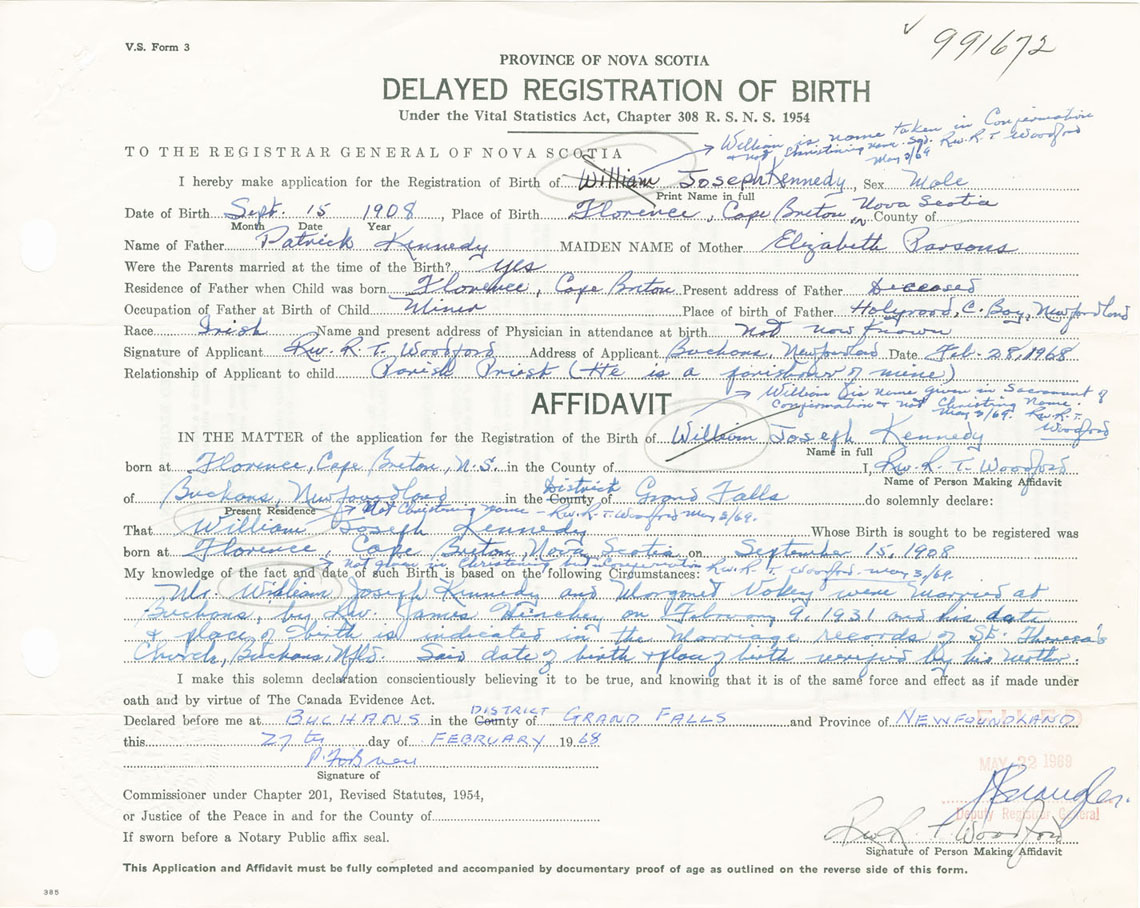 V.S. Form 3
991672
PROVINCE OF NOVA SCOTIA
DELAYED REGISTRATION OF BIRTH
Under the Vital Statistics Act, Chapter 308 R. S. N. S. 1954
William is name taken in Confirmation
& not Christening name. Sgd. Rev. R. T. Woodford
May 3/69
TO THE REGISTRAR GENERAL OF NOVA SCOTIA
I hereby make application for the Registration of Birth of William Joseph Kennedy, Sex Male
Print Name in full
Date of Birth Sept. 15 1908, Place of Birth Florence, Cape Breton, Nova Scotia in County of
Month Date Year
Name of Father Patrick Kennedy MAIDEN NAME of Mother Elizabeth Parsons
Were the Parents married at the time of the Birth? yes
Residence of Father when Child was born Florence, Cape Breton Present address of Father Deceased
Occupation of Father at Birth of Child Miner Place of birth of Father Holyrood, C. Bay, Newfoundland
Race Irish Name and present address of Physician in attendance at birth not now known
Signature of Applicant Rev. R. T. Woodford Address of Applicant Buchans, Newfoundland Date Feb. 28, 1968
Relationship of Applicant to child Parish Priest (He is a parishoner of mine)
William is name given in Sacrament of
Confirmation & not Christing Name.
May 3/69. Rev. R. T.
Woodford
AFFIDAVIT
IN THE MATTER of the application for the Registration of the Birth of William Joseph Kennedy
Name in full
born at Florence, Cape Breton, N.S. in the County of I, Rev. R. T. Woodford
Name of Person Making Affidavit
of Buchans, Newfoundland in the County of District Grand Falls do solemnly declare:
Present Residence
Not Christening name - Rev. R. T. Woodford May 3/69.
That William Joseph Kennedy Whose Birth is sought to be registered was
born at Florence, Cape Breton, Nova Scotia on September 15, 1908
not given in Christening but Confirmation Rev. R. T. Woodford May 3/69.
My knowledge of the fact and date of such Birth is based on the following Circumstances:
Mr. William Joseph Kennedy and Margaret Vokey were married at
Buchans, by Rev. James Hinchey on February 9, 1931 and his date
& place of birth is indicated in the marriage records of St. Theresa's
Church, Buchans, Nfld. Said date of birth & place of birth verified by his mother.
I make this solemn declaration conscientiously believing it to be true, and knowing that it is of the same force and effect as if made under
oath and by virtue of The Canada Evidence Act.
Declared before me at BUCHANS in the County of DISTRICT GRAND FALLS and Province of NEWFOUNDLAND
this 27th day of FEBRUARY 1968
FILED
MAY 22 1969
Signature of
Commissioner under Chapter 201, Revised Statutes, 1954,
or Justice of the Peace in and for the County of
Deputy Registrar General
If sworn before a Notary Public affix seal.
Rev. R. T. Woodford
Signature of Person Making Affidavit
This Application and Affidavit must be fully completed and accompanied by documentary proof of age as outlined on the reverse side of this form.
385